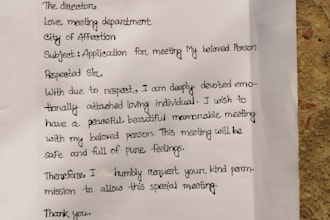 The director,
Love meeting department
City of Affection
Subject: Application for meeting My beloved Person
Respected Sir,
With due to respect, I am deeply devoted emo-
tionally attached loving individual. I wish to
have a peaceful beautiful memorable meeting
with my beloved person. This meeting will be
safe and full of pure feelings.
Therefore, I humbly request your kind perm-
mission to allow this special meeting.
Thank you.